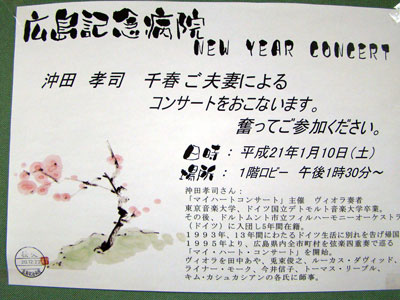 広島記念病院
NEW YEAR CONCERT
沖田 孝司 千春ご夫妻による
コンサートをおこないます。
奮ってご参加ください。
日時 : 平成21年1月10日(土)
場所 : 1階ロビー 午後1時30分～
沖田孝司さん：
「マイハートコンサート」主催 ヴィオラ奏者
東京音楽大学、ドイツ国立デトモルト音楽大学卒業。
その後、ドルトムント市立フィルハーモニーオーケストラ
(ドイツ)に入団し5年間在籍。
1993年、13年間にわたるドイツ生活に別れを告げ帰国
1995年より、広島県内全市町村を弦楽四重奏で巡る
「マイ・ハート・コンサート」を開始。
ヴィオラを田中あや、兎束俊之、ルーカス・ダヴィッド、
ライナー・モーク、今井信子、トーマス・リーブル、
キム・カシュカシアンの各氏に師事。